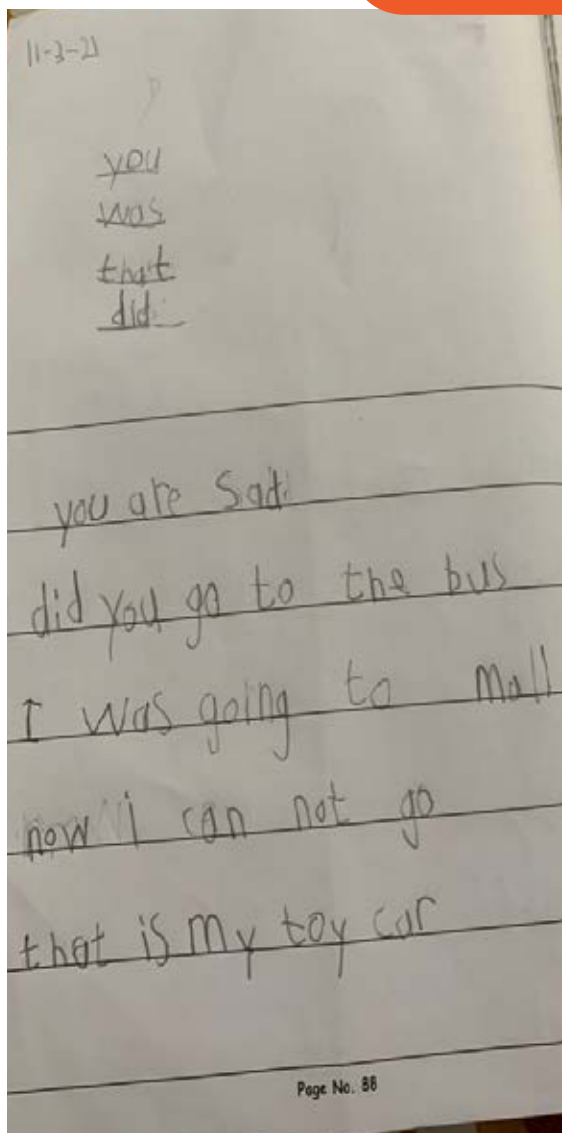 11-3-21
you
was
that
did
you are sad.
did you go to the bus
I was going to mall
now i can not go
that is my toy car
Page No. 88